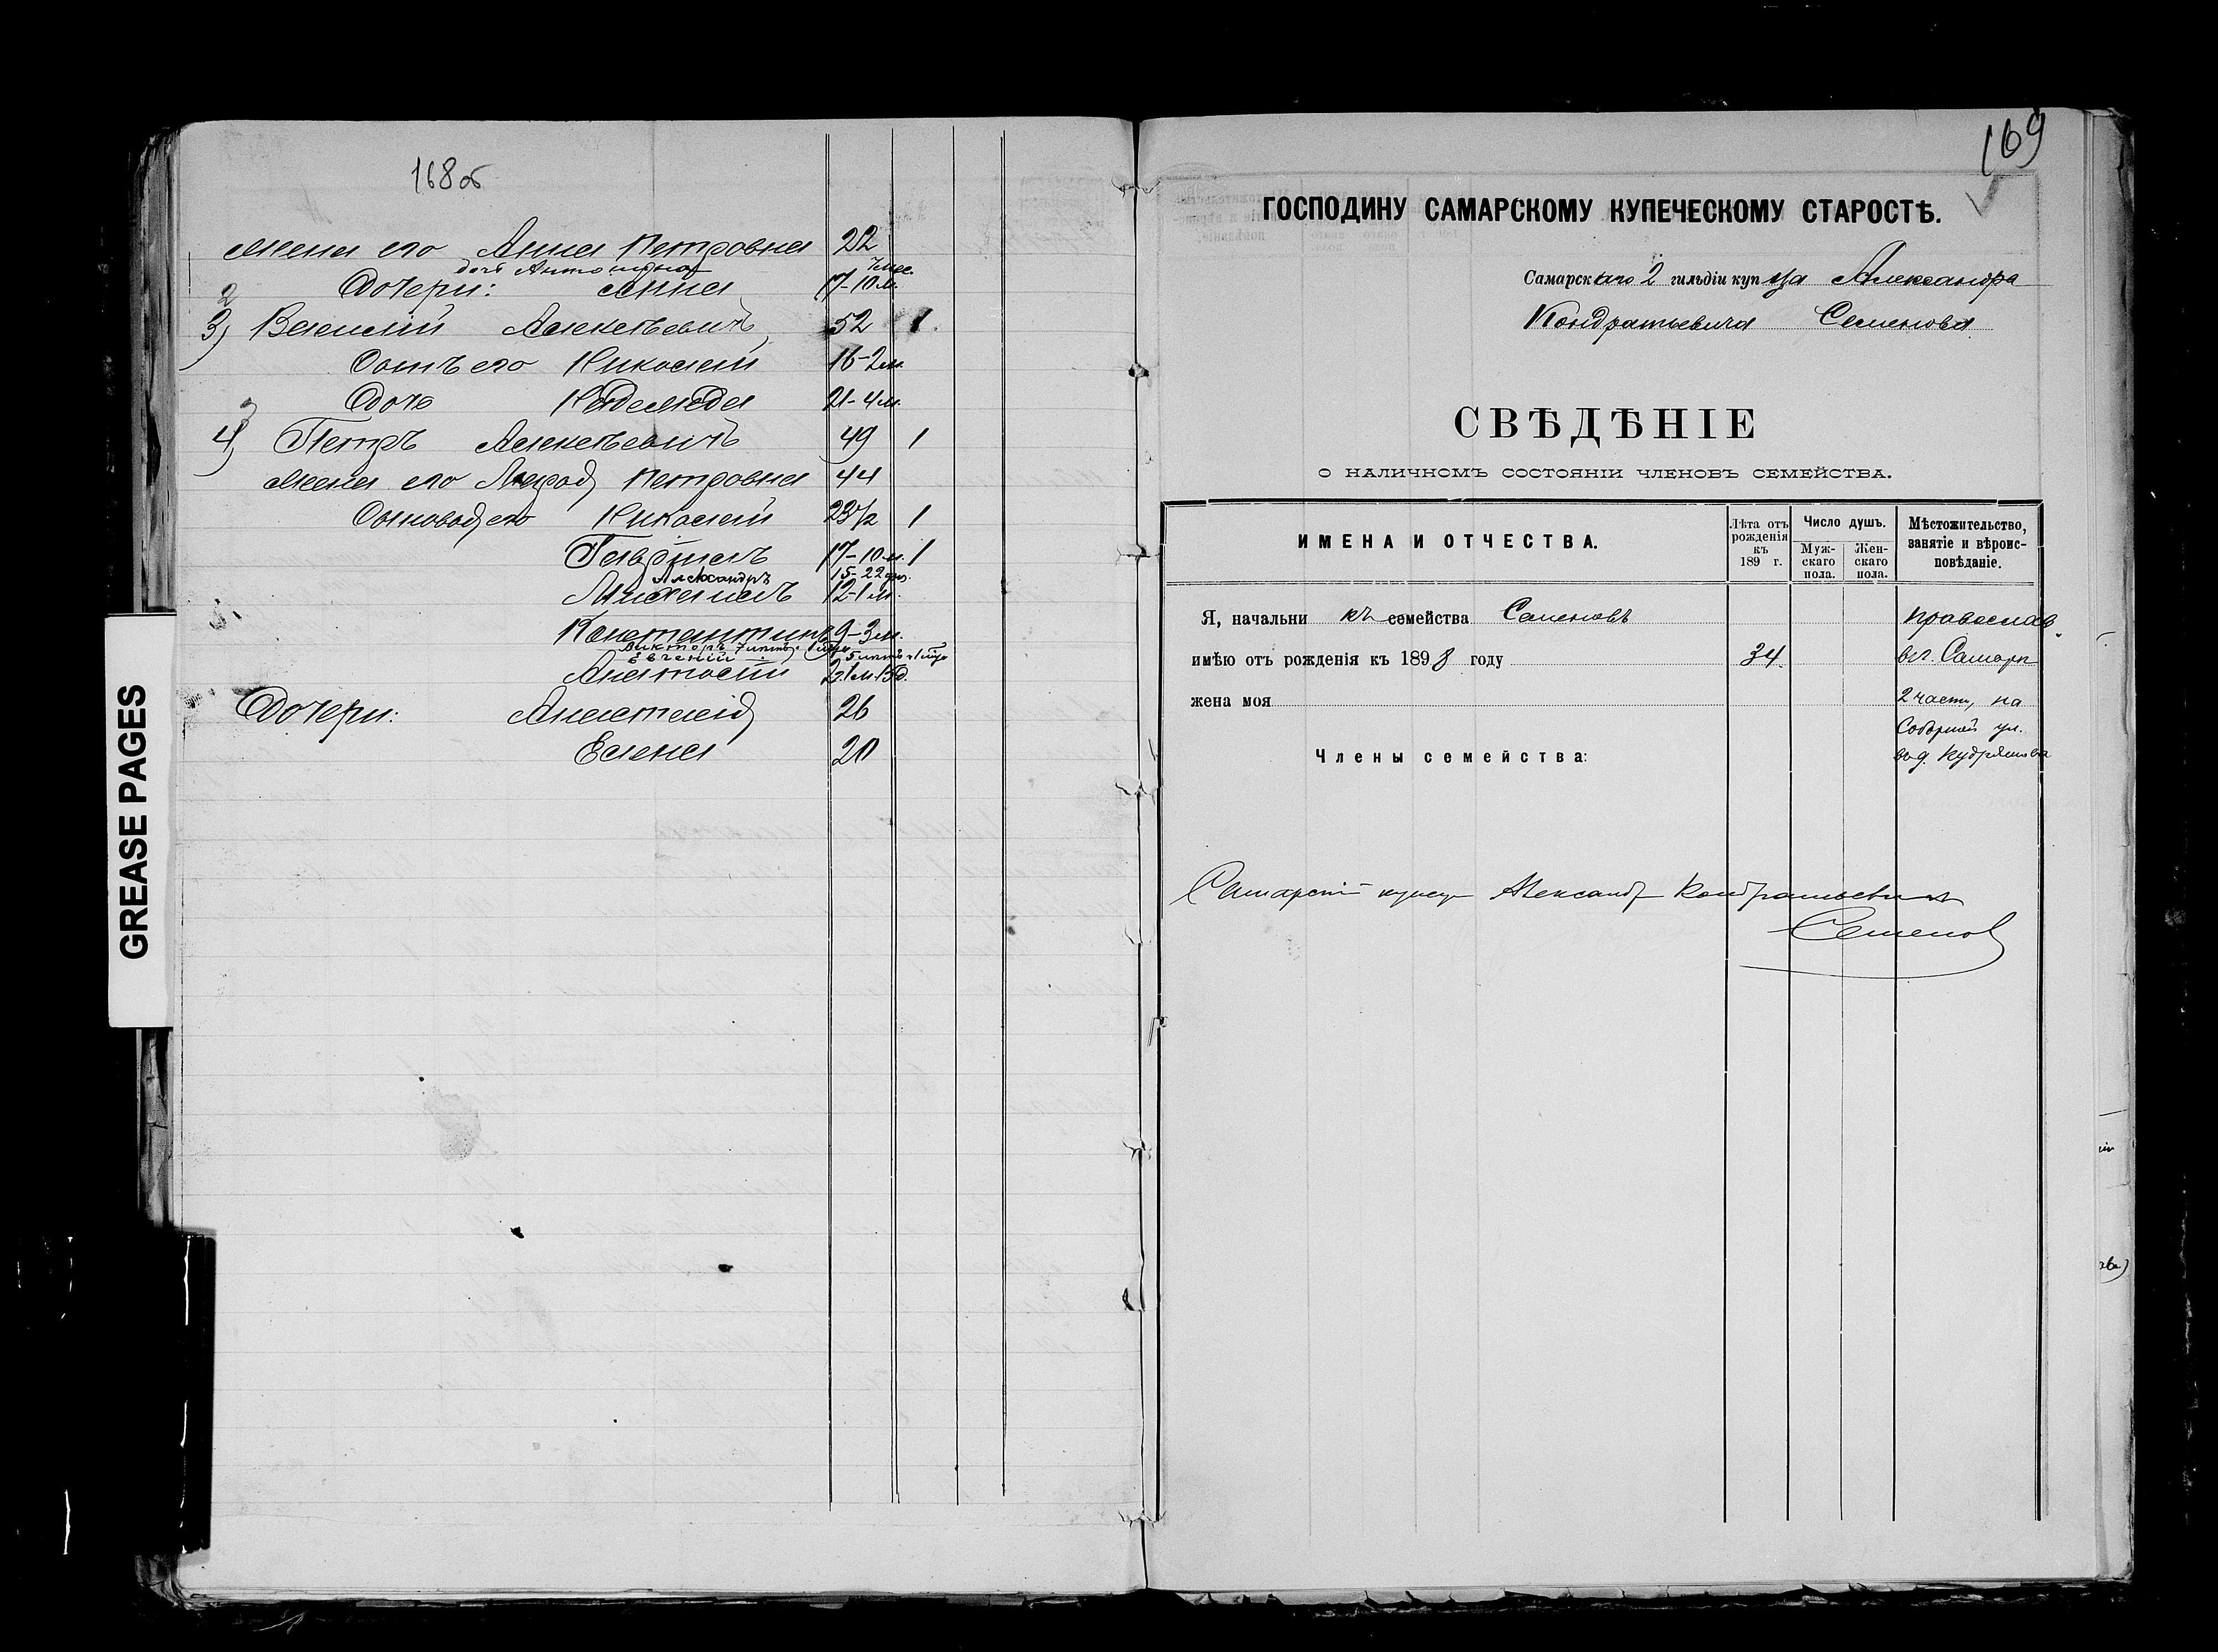 168 об
жена его Анна Петровна 22
дочь Антонина 7 мес.
2 Дочери: Анна 17-10 м.
3) Василій Алексѣевичъ 52 1
Сынъ его Николай 16-2 м.
Дочь Надежда 21-4 м.
3
4) Петръ Алексѣевичъ 49 1
жена его Петровна 44
Сыновья его Николай 23 1/2 1
Гавріилъ 17-10 м. 1
Александръ 15-22 дн.
Михаилъ 12-1 м.
Константинъ 9-3 м.
Викторъ 7 лѣтъ
Евгеній 5 лѣтъ
Анатолій 2.1 м. 15 д.
Дочери: Анастасія 26
Елена 20
GREASE PAGES
169
ГОСПОДИНУ САМАРСКОМУ КУПЕЧЕСКОМУ СТАРОСТѢ.
Самарскаго 2 гильдіи купца Александра
Кондратьевича Семенова
СВѢДѢНІЕ
О НАЛИЧНОМЪ СОСТОЯНІИ ЧЛЕНОВЪ СЕМЕЙСТВА.
ИМЕНА И ОТЧЕСТВА.
Лѣта отъ рожденія къ 189 г.
Число душъ.
Мужскаго пола.
Женскаго пола.
Мѣстожительство, занятіе и вѣроисповѣданіе.
Я, начальникъ семейства Семеновъ православ.
имѣю отъ рожденія къ 1898 году 34 въ г. Самарѣ
жена моя 2 части, на
Соборной ул.
Члены семейства: в д. Кудряшова
Самарскій купецъ Александръ Кондратьевичъ
Семенов